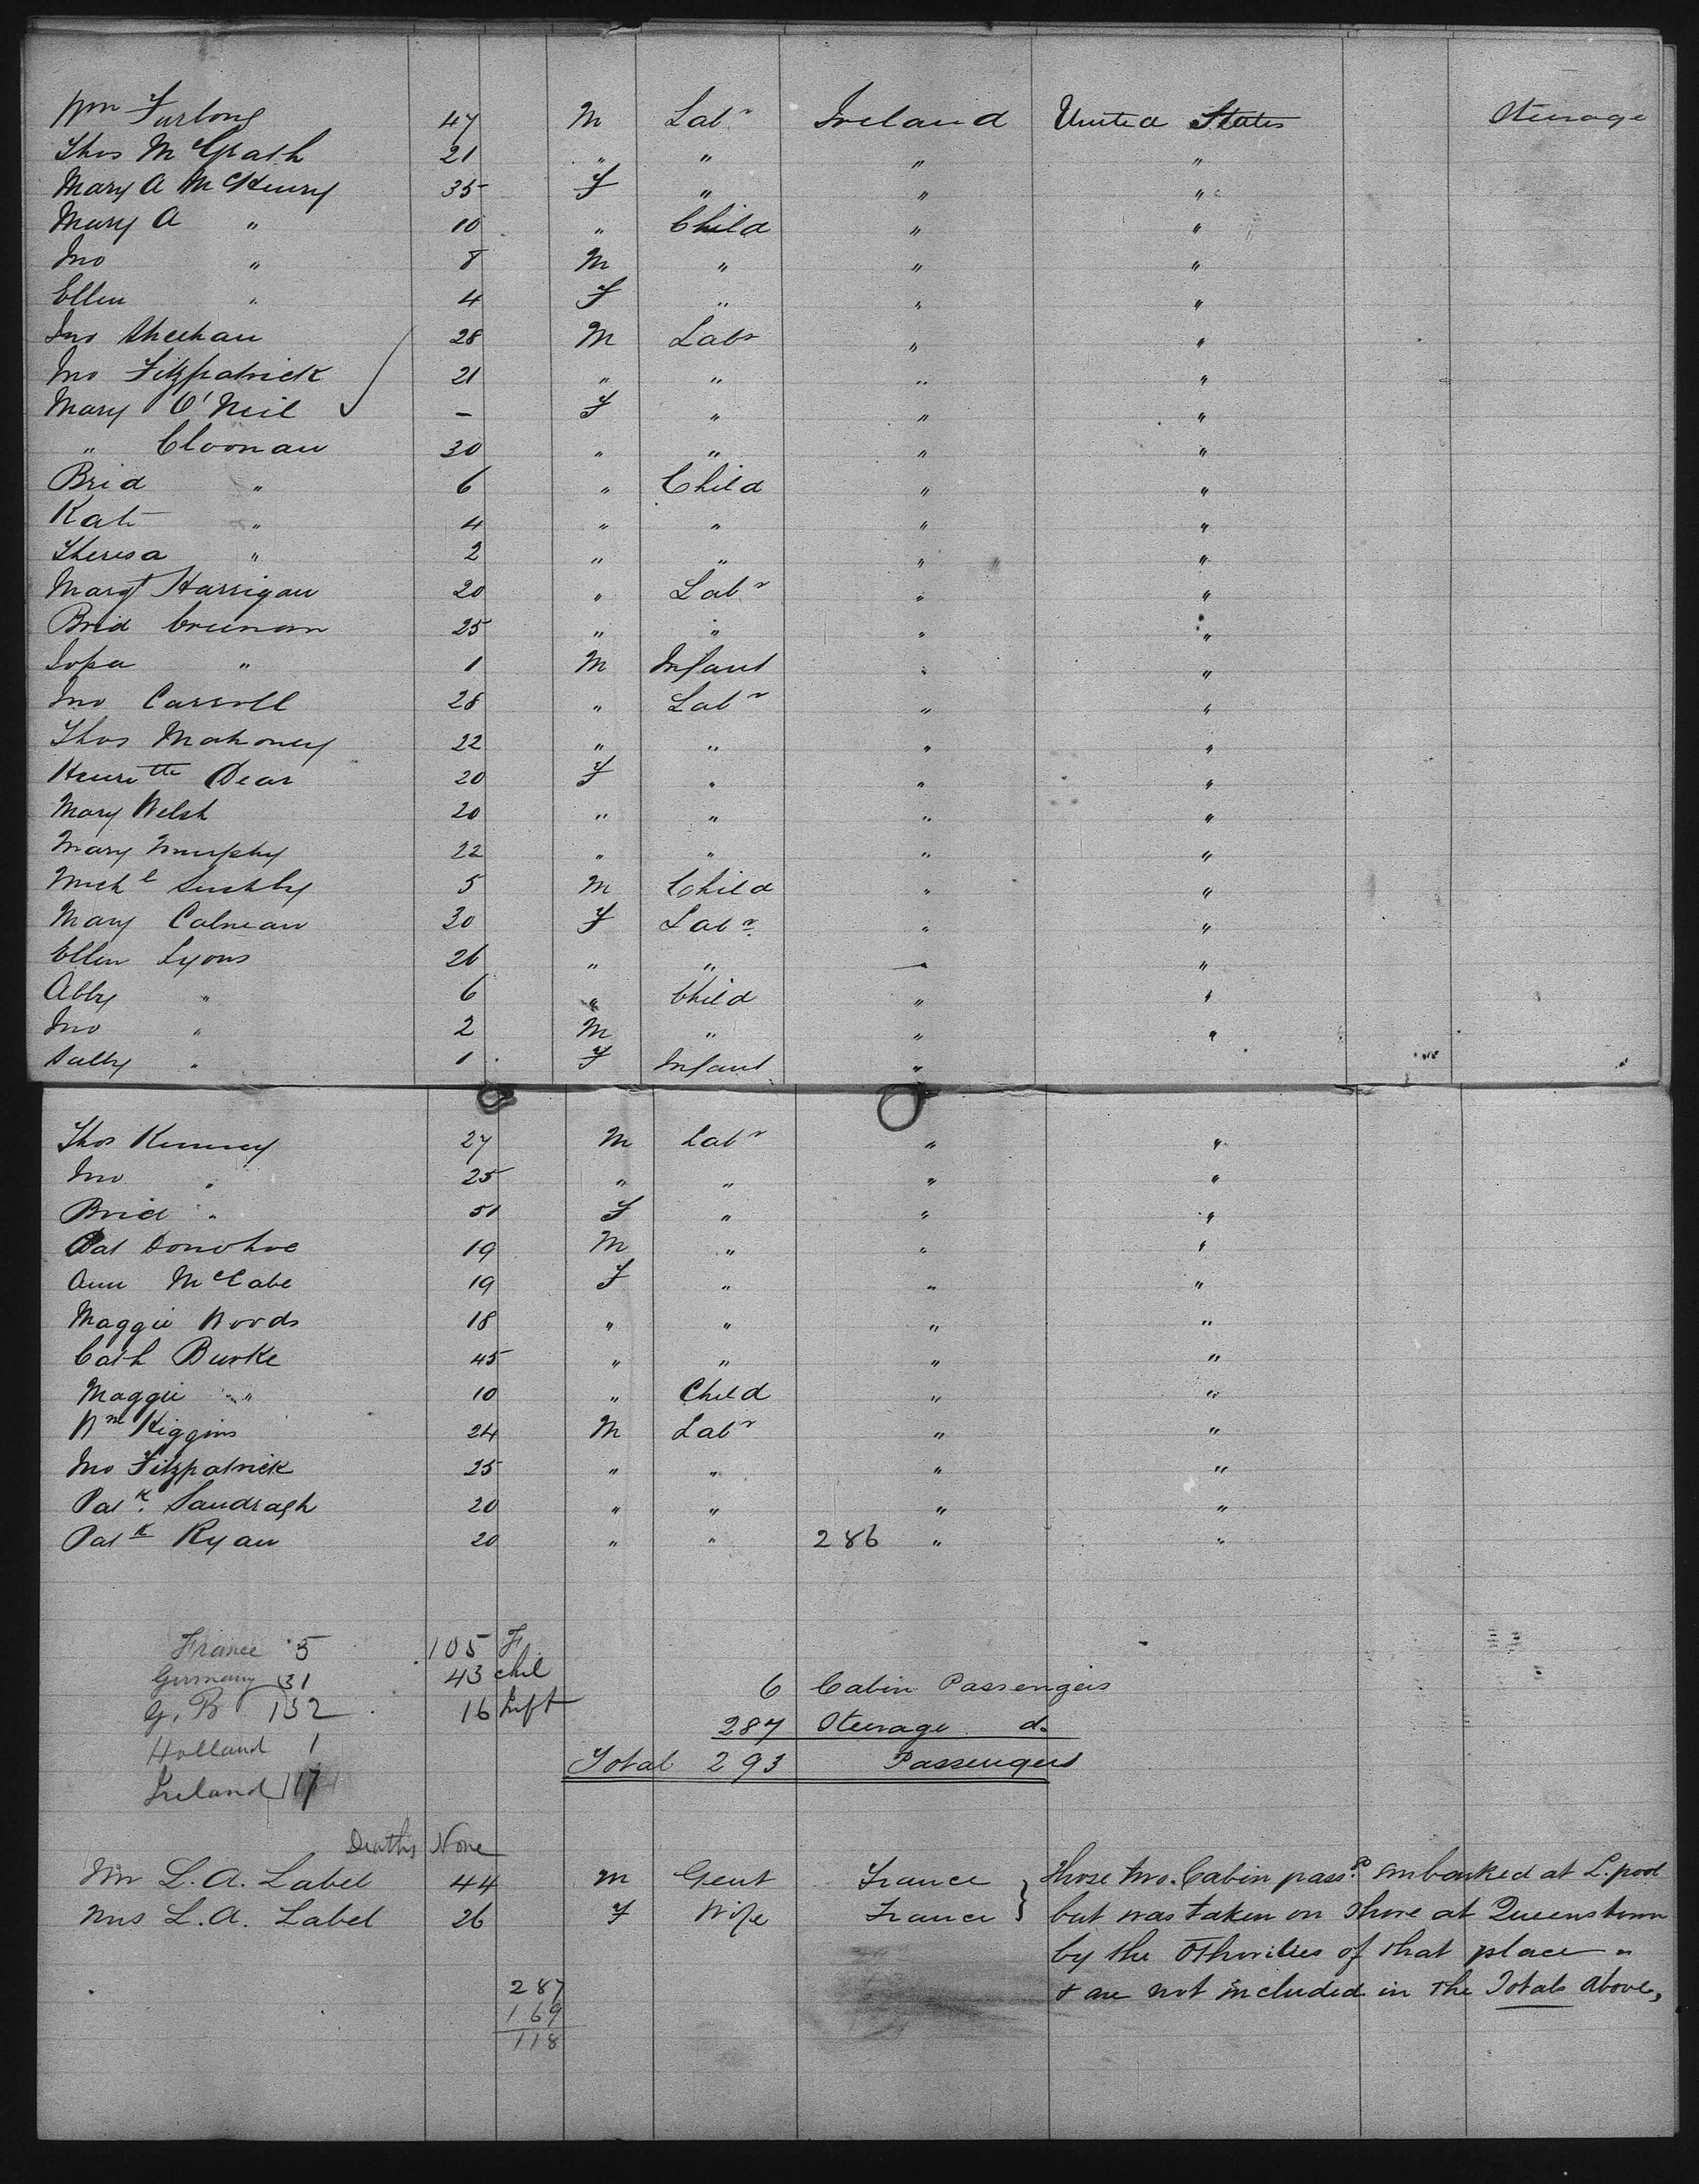 Wm Furlong 47 M Labr Ireland United States Steerage
Thos McGrath 21 " " " "
Mary A McKenry 35 F " " "
Mary A " 10 " Child " "
Jno " 8 M " " "
Ellen " 4 F " " "
Jno Sheehan 28 M Labr " "
Jno Fitzpatrick 21 " " " "
Mary O'Neil - F " " "
" Cloonan 30 " " " "
Brid " 6 " Child " "
Kate " 4 " " " "
Theresa " 2 " " " "
Margt Harrigan 20 " Labr " "
Brid 25 " " " "
" 1 M Infant " "
Jno Carroll 28 " Labr " "
Thos Mahoney 22 " " " "
Henrtte Dear 20 F " " "
Mary Welsh 20 " " " "
Mary Murphy 22 " " " "
Michl 5 M Child " "
Mary Calnean 30 F Labr " "
Ellen Lyons 26 " " " "
Abby " 6 " Child " "
Jno " 2 M " " "
Sally " 1 F Infant "
Thos Kenney 27 M Labr " "
Jno " 25 " " " "
Brid " 51 F " " "
Pat Donohoe 19 M " " "
Ann McCabe 19 F " " "
Maggie Woods 18 " " " "
Cath Burke 45 " " " "
Maggie " 10 " Child " "
Wm Higgins 24 M Labr " "
Jno Fitzpatrick 25 " " " "
Patk Sandragh 20 " " " "
Patk Ryan 20 " " 286 " "
France 5 105 F
Germany 31 43 chil
G. B 132 16 Inft
6 Cabin Passengers
287 Steerage do
Holland 1
Total 293 Passengers
Ireland 117
Deaths None
Mr L. A. Label 44 M Gent France } those two Cabin passrs embarked at L.pool
Mrs L. A. Label 26 F Wife France } but was taken on Shore at Queenstown
by the Othorities of that place "
& are not included in the Totals above,
287
169
118